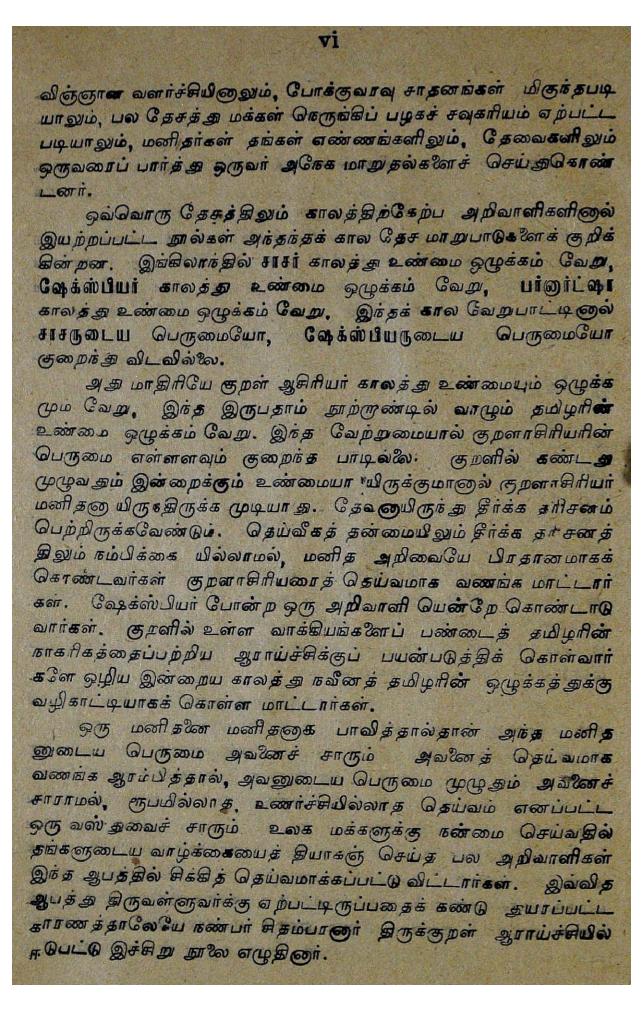 vi
விஞ்ஞான வளர்ச்சியினாலும், போக்குவரவு சாதனங்கள் மிகுந்தபடி
யாலும், பல தேசத்து மக்கள் நெருங்கிப் பழகச் சவுகரியம் ஏற்பட்ட
படியாலும், மனிதர்கள் தங்கள் எண்ணங்களிலும், தேவைகளிலும்
ஒருவரைப் பார்த்து ஒருவர் அநேக மாறுதல்களைச் செய்துகொண்
டனர்.
ஒவ்வொரு தேசத்திலும் காலத்திற்கேற்ப அறிவாளிகளினால்
இயற்றப்பட்ட நூல்கள் அந்தந்தக் கால தேச மாறுபாடுகளைக் குறிக்
கின்றன. இங்கிலாந்தில் சாசர் காலத்து உண்மை ஒழுக்கம் வேறு,
ஷேக்ஸ்பியர் காலத்து உண்மை ஒழுக்கம் வேறு, பர்னார்ட்ஷா
காலத்து உண்மை ஒழுக்கம் வேறு, இந்தக் கால வேறுபாட்டினால்
சாசருடைய பெருமையோ, ஷேக்ஸ்பியருடைய பெருமையோ
குறைந்து விடவில்லை.
அது மாதிரியே குறள் ஆசிரியர் காலத்து உண்மையும் ஒழுக்க
மும வேறு, இந்த இருபதாம் நூற்றாண்டில் வாழும் தமிழரின்
உண்மை ஒழுக்கம் வேறு. இந்த வேற்றுமையால் குறளாசிரியரின்
பெருமை எள்ளளவும் குறைந்த பாடில்லை. குறளில் கண்டது
முழுவதும் இன்றைக்கும் உண்மையா யிருக்குமானால் குறளாசிரியர்
மனிதனா யிருந்திருக்க முடியாது. தேவனாயிருந்து தீர்க்க தரிசனம்
பெற்றிருக்கவேண்டும். தெய்வீகத் தன்மையிலும் தீர்க்க தரிசனத்
திலும் நம்பிக்கை யில்லாமல், மனித அறிவையே பிரதானமாகக்
கொண்டவர்கள் குறளாசிரியரைத் தெய்வமாக வணங்க மாட்டார்
கள். ஷேக்ஸ்பியர் போன்ற ஒரு அறிவாளி யென்றே கொண்டாடு
வார்கள். குறளில் உள்ள வாக்கியங்களைப் பண்டைத் தமிழரின்
நாகரிகத்தைப்பற்றிய ஆராய்ச்சிக்குப் பயன்படுத்திக் கொள்வார்
களே ஒழிய இன்றைய காலத்து நவீனத் தமிழரின் ஒழுக்கத்துக்கு
வழிகாட்டியாகக் கொள்ள மாட்டார்கள்.
ஒரு மனிதனை மனிதனாக பாவித்தால்தான் அந்த மனித
னுடைய பெருமை அவனைச் சாரும் அவனைத் தெய்வமாக
வணங்க ஆரம்பித்தால், அவனுடைய பெருமை முழுதும் அவனைச்
சாராமல், ரூபமில்லாத, உணர்ச்சியில்லாத தெய்வம் எனப்பட்ட
ஒரு வஸ்துவைச் சாரும் உலக மக்களுக்கு நன்மை செய்வதில்
தங்களுடைய வாழ்க்கையைத் தியாகஞ் செய்த பல அறிவாளிகள்
இந்த ஆபத்தில் சிக்கித் தெய்வமாக்கப்பட்டு விட்டார்கள். இவ்வித
ஆபத்து திருவள்ளுவர்க்கு ஏற்பட்டிருப்பதைக் கண்டு துயரப்பட்ட
காரணத்தாலேயே நண்பர் சிதம்பரனார் திருக்குறள் ஆராய்ச்சியில்
ஈடுபட்டு இச்சிறு நூலை எழுதினார்.